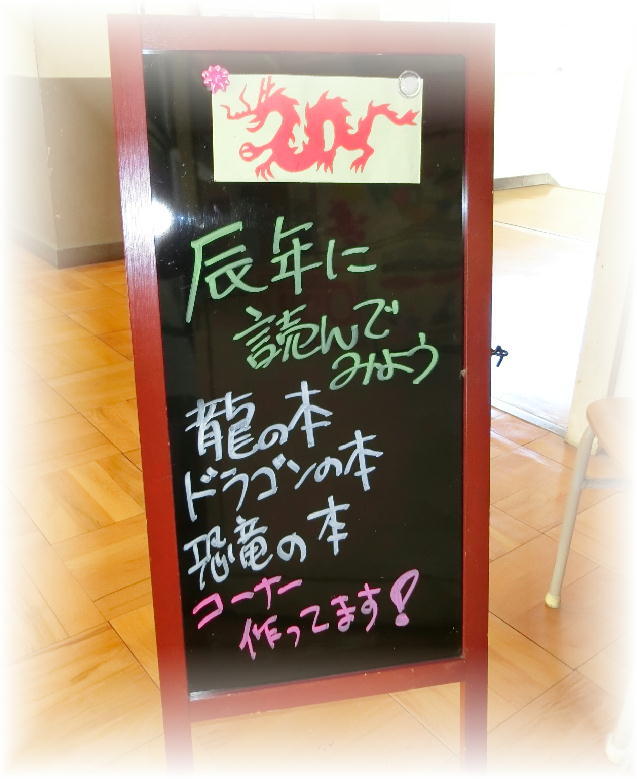 辰年に
読んで
みよう
龍の本
ドラゴンの本
恐竜の本
コーナー
作ってます！